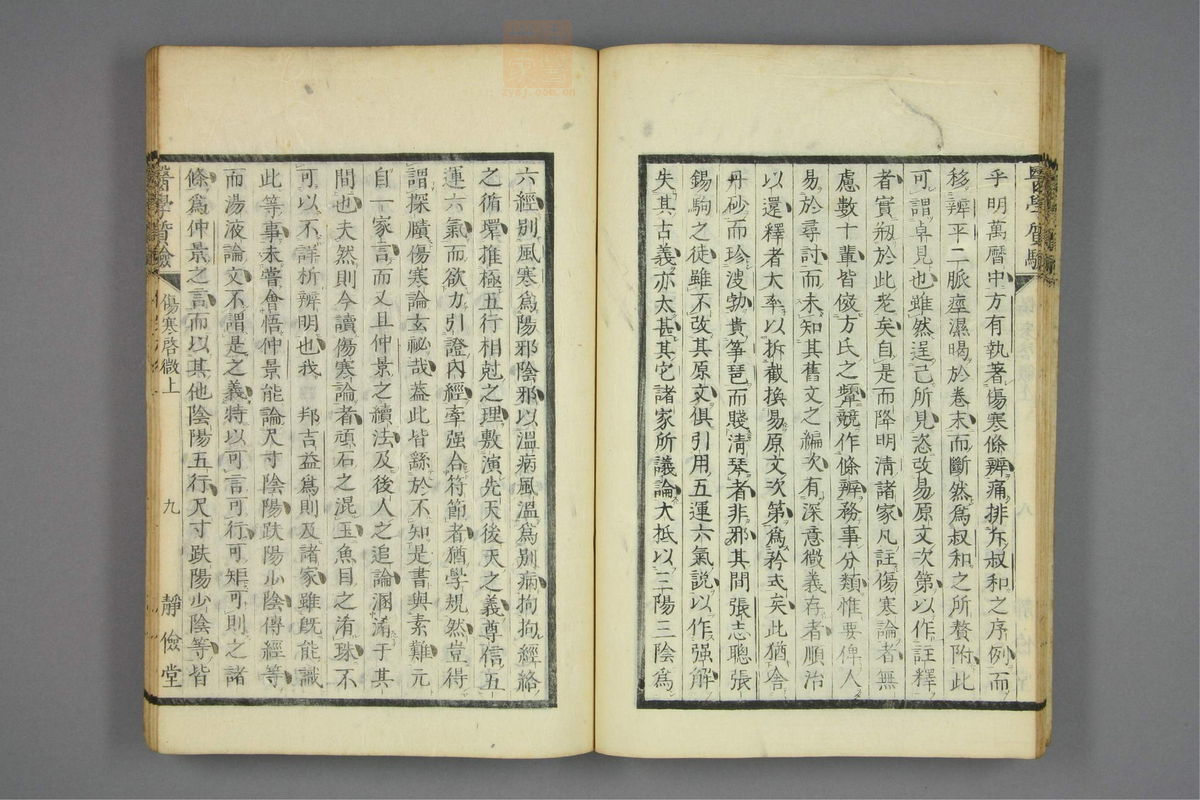 乎明萬曆中方有執著傷寒條辨痛排斥叔和之序例而
移辨平二脈痙濕暍於卷末而斷然爲叔和之所贅附此
可謂卓見也雖然逞己所見恣改易原文次第以作註釋
者實剏於此老矣自是而降明清諸家凡註傷寒論者無
慮數十輩皆倣方氏之顰競作條辨務事分類惟要俾人
易於尋討而未知其舊文之編次有深意微義存者順治
以還釋者大率以拆截換易原文次第爲矜式矣此猶舍
丹砂而珍溲勃貴箏琶而賤淸琴者非邪其間張志聰張
錫駒之徒雖不改其原文俱引用五運六氣説以作强解
失其古義亦太甚其它諸家所議論大抵以三陽三陰爲
六經別風寒爲陽邪陰邪以溫病風溫爲別病拘拘經絡
之循環推極五行相尅之理敷演先天後天之義尊信五
運六氣而欲力引證內經牽强合符節者猶學規然豈得
謂探賾傷寒論玄祕哉葢此皆繇於不知是書與素難元
自一家言而又且仲景之續法及後人之追論溷淆于其
間也夫然則今讀傷寒論者頑石之混玉魚目之淆珠不
可以不詳析辨明也我 邦吉益爲則及諸家雖旣能識
此等事未嘗會悟仲景能論尺寸陰陽趺陽少陰傳經等
而湯液論文不謂是之義特以可言可行可矩可則之諸
條爲仲景之言而以其他陰陽五行尺寸趺陽少陰等皆
傷寒啓微上
九
靜儉堂